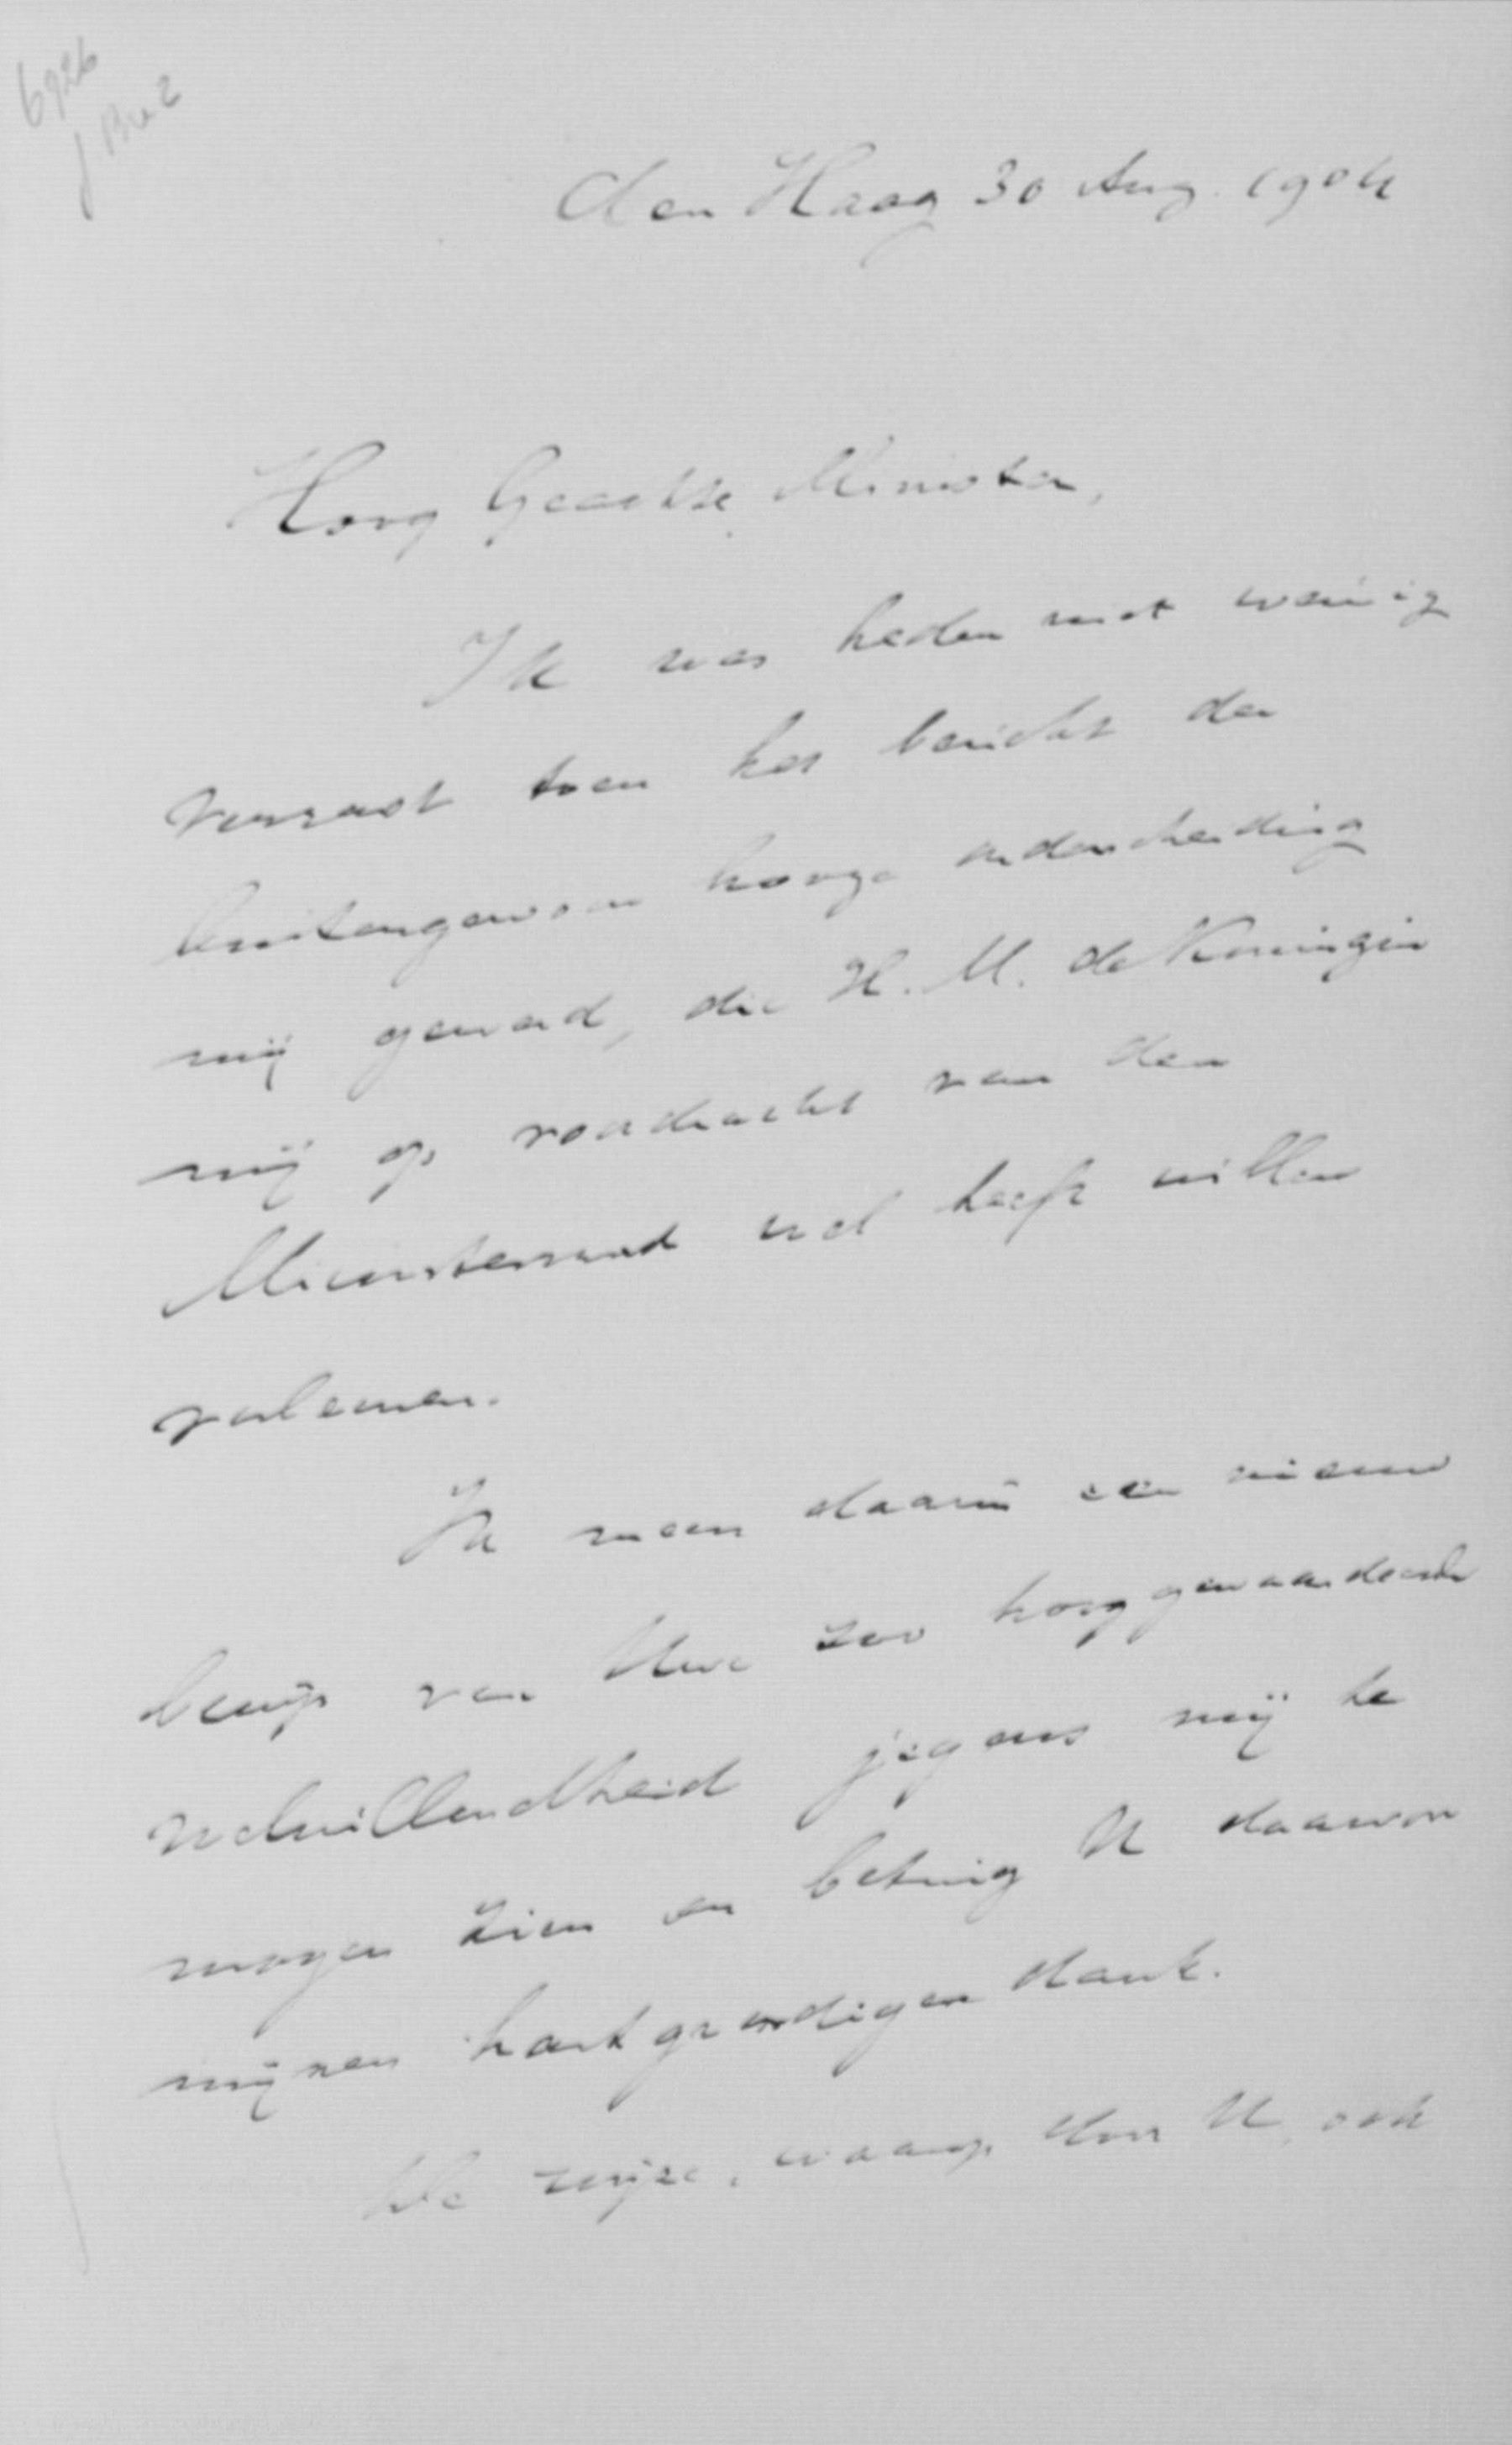 6926
den Haag 30 Aug. 1904
Hoog Geachte Minister,
Ik was heden niet weinig
verrast toen het bericht der
buitengewoon hooge onderscheiding
mij gewerd, die H. M. de Koningin
mij op voordracht van den
Ministerraad wel heeft willen
verleenen.
Ik meen daarin een nieuw
bewijs van Uwe zoo hooggewaardeerde
welwillendheid jegens mij te
mogen zien en betuig U daarvoor
mijnen hartgrondigen dank.
De wijze, waarop door U, ook